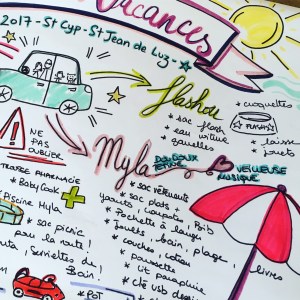 Vacances
2017 - St Cyp - St Jean de Luz -
Flashou
* croquettes
* sac flash
* eau vitue
* gamelles
FLASH
* laisse
* jouets
NE
PAS
OUBLIER
Myla
DOUDOUX
VEILLEUSE
MUSIQUE
TROUSSE PHARMACIE
* BabyCook
* Piscine Myla
* sac picnic
pour la route!
Serviettes de
Bain!
* sac vêtements
* sac plats:
yaourts, compotes, Bib
* Pochette à langer
* jouets: bain, plage,
livres
* couches, lotion
* poussette
* lit parapluie
* clé usb dessin
* POT